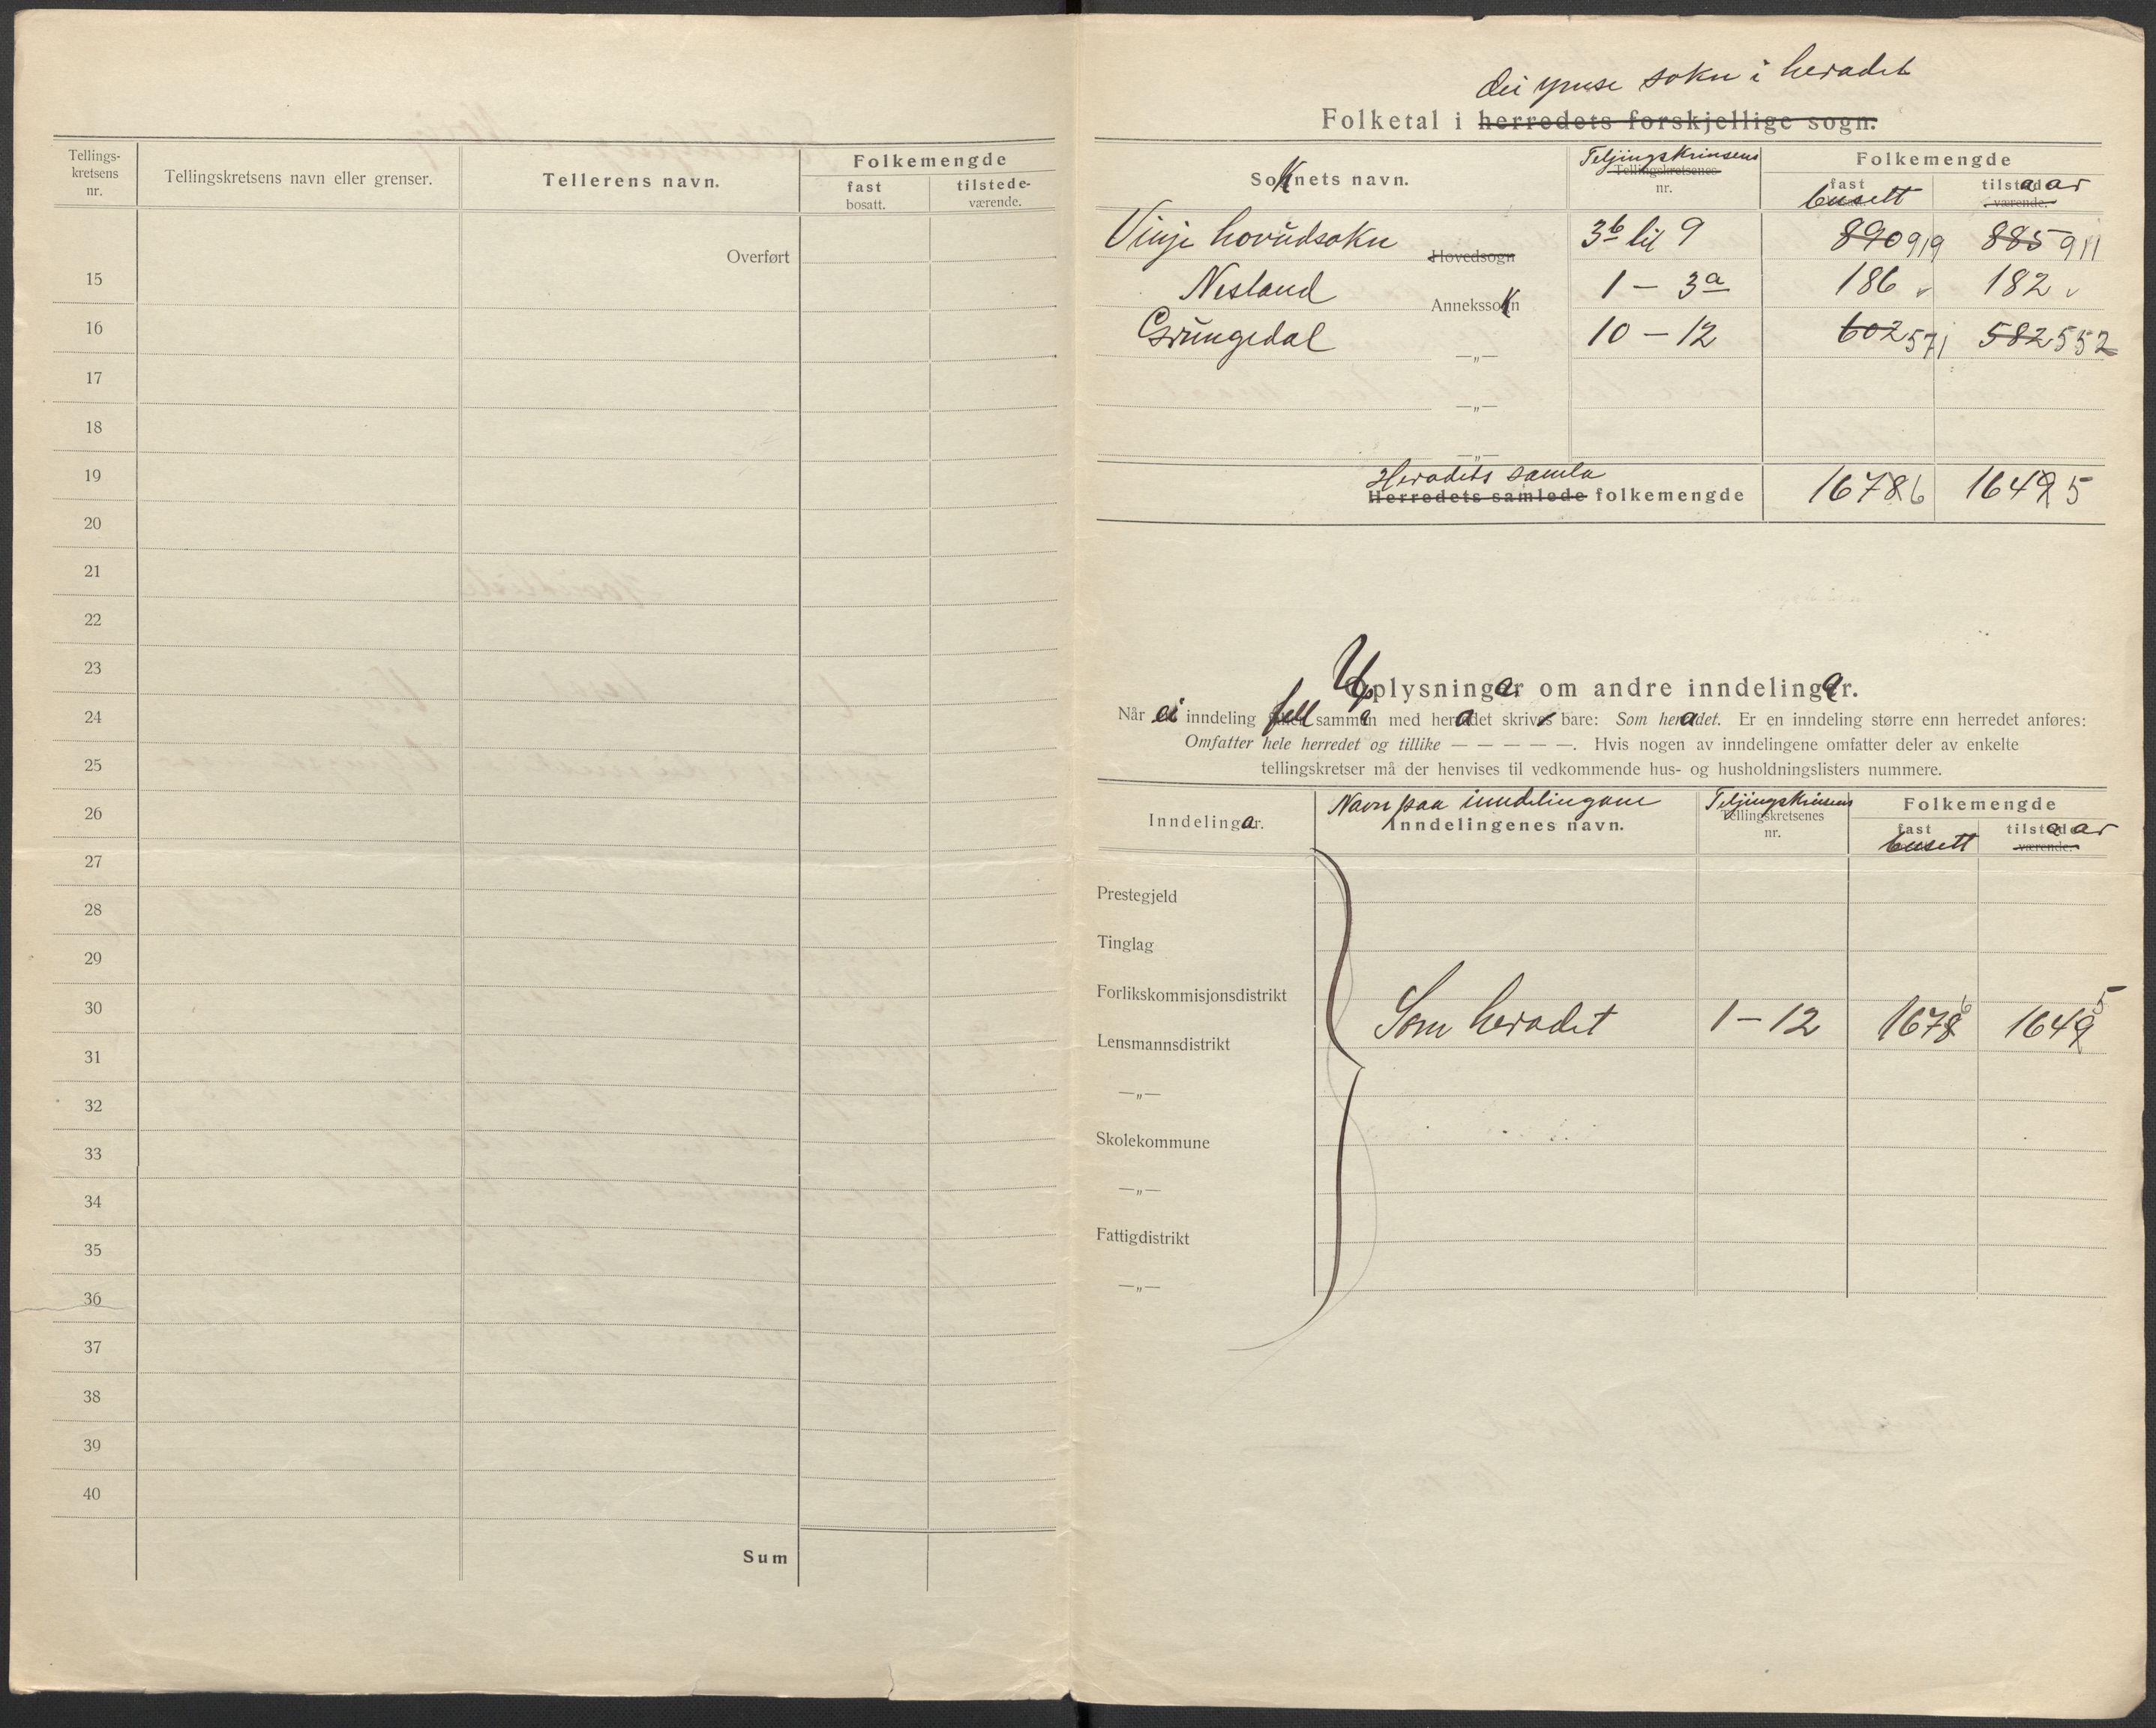 Tellings-
kretsens
nr.
Tellingskretsens navn eller grenser.
Tellerens navn.
Folkemengde
fast
bosatt.
tilstede-
værende.
Overført
15
16
17
18
19
20
21
22
23
24
25
26
27
28
29
30
31
32
33
34
35
36
37
38
39
40
Sum
dei ymse sokn i heradet
Folketal i herredets forskjellige sogn.
Soknets navn.
Teljingskrinsens
Tellingskretsenes
nr.
Folkemengde
fast
busett
tilstadear
værende.
Vinje hovudsokn Hovedsogn 3b til 9 890 919 885 911
Nesland Annekssokn 1 - 3a 186 182
Grungedal —„— 10 - 12 602 571 582 552
—„—
—„—
Heradets samla
Herredets samlede folkemengde 16786 16495
Upplysningar om andre inndelingar.
Når ei inndeling fell saman med heradet skriv bare: Som heradet. Er en inndeling større enn herredet anføres:
Omfatter hele herredet og tillike — — — — —. Hvis nogen av inndelingene omfatter deler av enkelte
tellingskretser må der henvises til vedkommende hus- og husholdningslisters nummere.
Inndelingar.
Navn paa inndelingane
Inndelingenes navn.
Teljingskrinsens
Tellingskretsenes
nr.
Folkemengde
fast
busett
tilstadear
værende.
Prestegjeld
Tinglag
Forlikskommisjonsdistrikt
Som heradet 1 - 12 16786 16495
Lensmannsdistrikt
—„—
Skolekommune
—„—
Fattigdistrikt
—„—